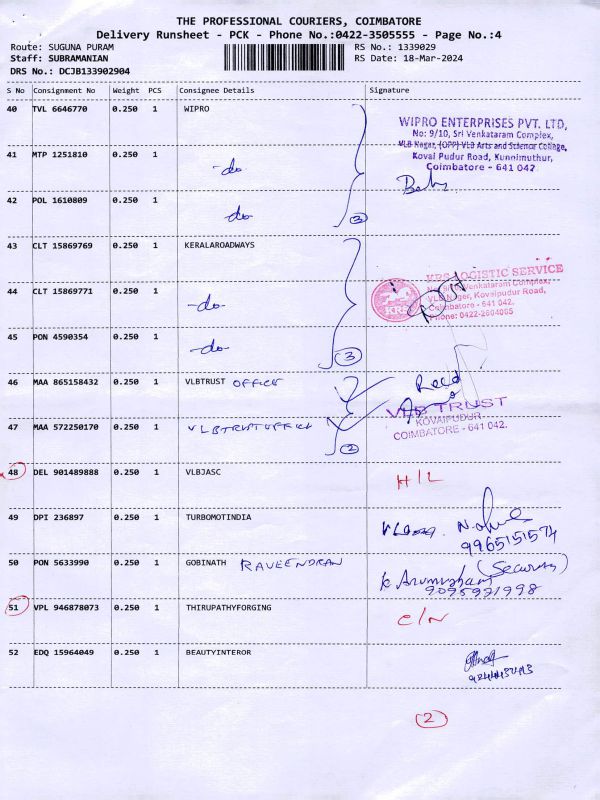 THE PROFESSIONAL COURIERS, COIMBATORE
Delivery Runsheet - PCK - Phone No.:0422-3505555 - Page No.:4
Route: SUGUNA PURAM RS No.: 1339029
Staff: SUBRAMANIAN RS Date: 18-Mar-2024
DRS No.: DCJB133902904
S No Consignment No Weight PCS Consignee Details Signature
40 TVL 6646770 0.250 1 WIPRO
WIPRO ENTERPRISES PVT. LTD,
No: 9/10, Sri Venkataram Complex,
VLB Nagar, (OPP) VLB Arts and Science College,
Koval Pudur Road, Kunoimuthur,
Coimbatore - 641 042.
41 MTP 1251810 0.250 1 -do-
42 POL 1610809 0.250 1 -do-
3
43 CLT 15869769 0.250 1 KERALAROADWAYS
KRS LOGISTIC SERVICE
Venkataram Complex,
VLB Nagar, Kovaipudur Road,
Coimbatore - 641 042.
Phone: 0422-2604065
KRS
44 CLT 15869771 0.250 1 -do-
45 PON 4590354 0.250 1 -do-
3
46 MAA 865158432 0.250 1 VLBTRUST OFFICE Recd
VLB TRUST
KOVAIPUDUR
COIMBATORE - 641 042.
47 MAA 572250170 0.250 1 VLBTRUST OFFICE
2
48 DEL 901489888 0.250 1 VLBJASC H/L
49 DPI 236897 0.250 1 TURBOMOTINDIA
9965151574
50 PON 5633990 0.250 1 GOBINATH RAVEENDRAN (Security)
K Arumugham
9095991998
51 VPL 946878073 0.250 1 THIRUPATHYFORGING C/N
52 EDQ 15964049 0.250 1 BEAUTYINTEROR
2